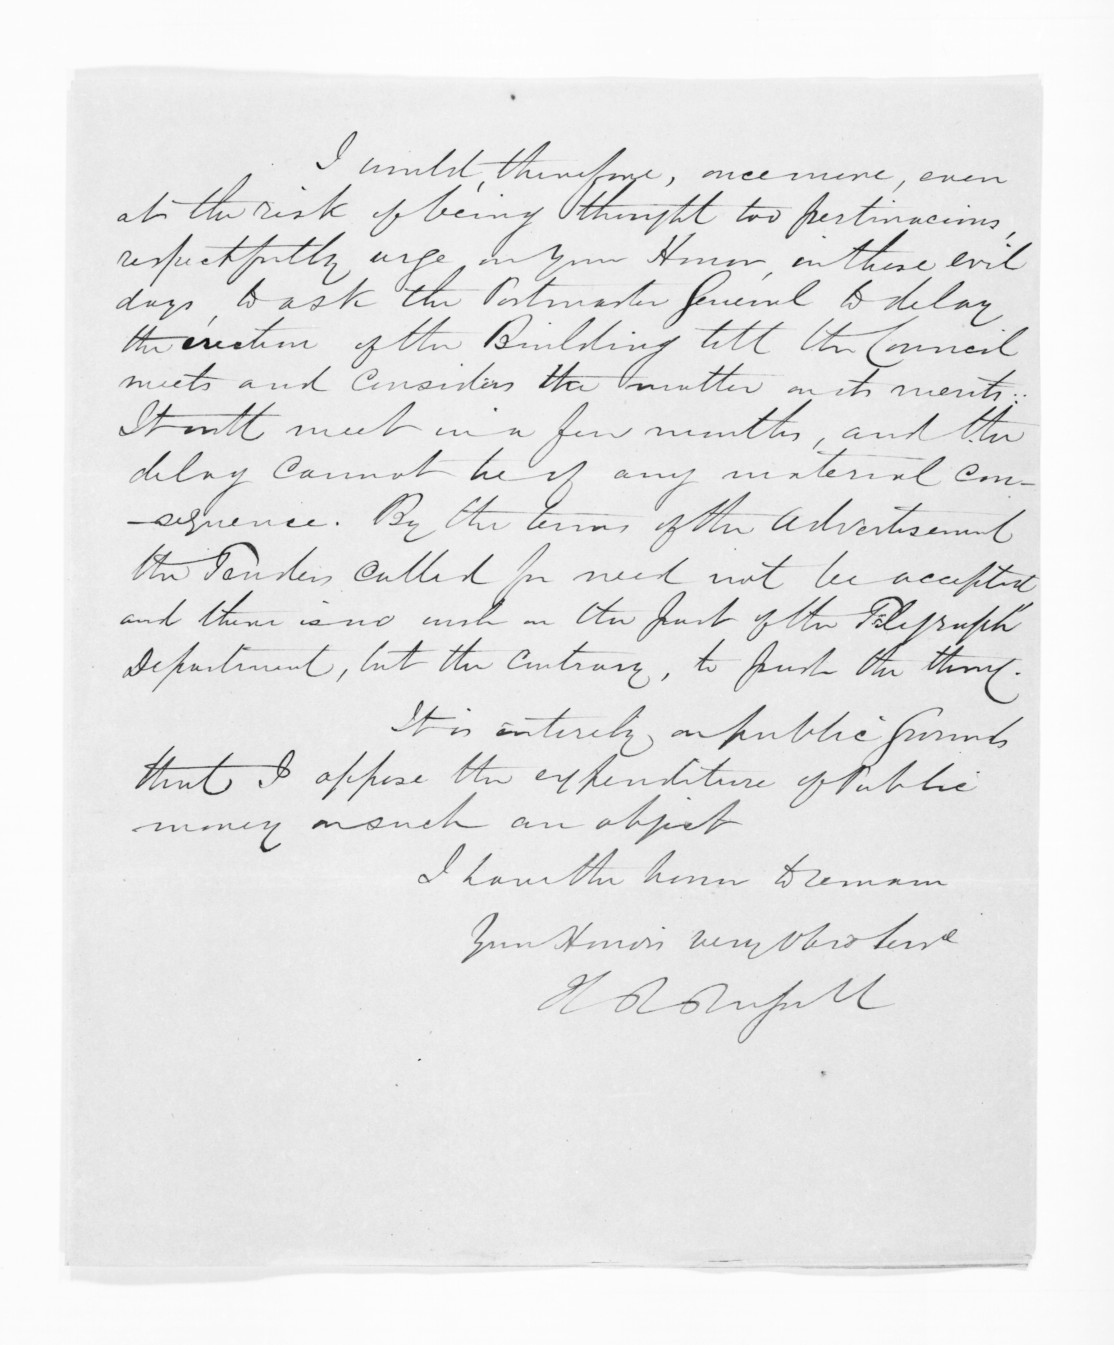 I would, therefore, once more, even
at the risk of being thought too pertinacious,
respectfully urge on Your Honor, in these evil
days, to ask the Postmaster General to delay
the erection of the Building till the Council
meets and considers the matter on its merits:
It will meet in a few months, and the
delay cannot be of any material con-
-sequence. By the terms of the Advertisement
the Tenders called for need not be accepted
and there is no wish on the part of the Telegraph
Department, but the contrary, to push the thing.
It is entirely on public Grounds
that I oppose the expenditure of Public
money on such an object
I have the honor to remain
Your Honor's very Obed Serv
H R Russell